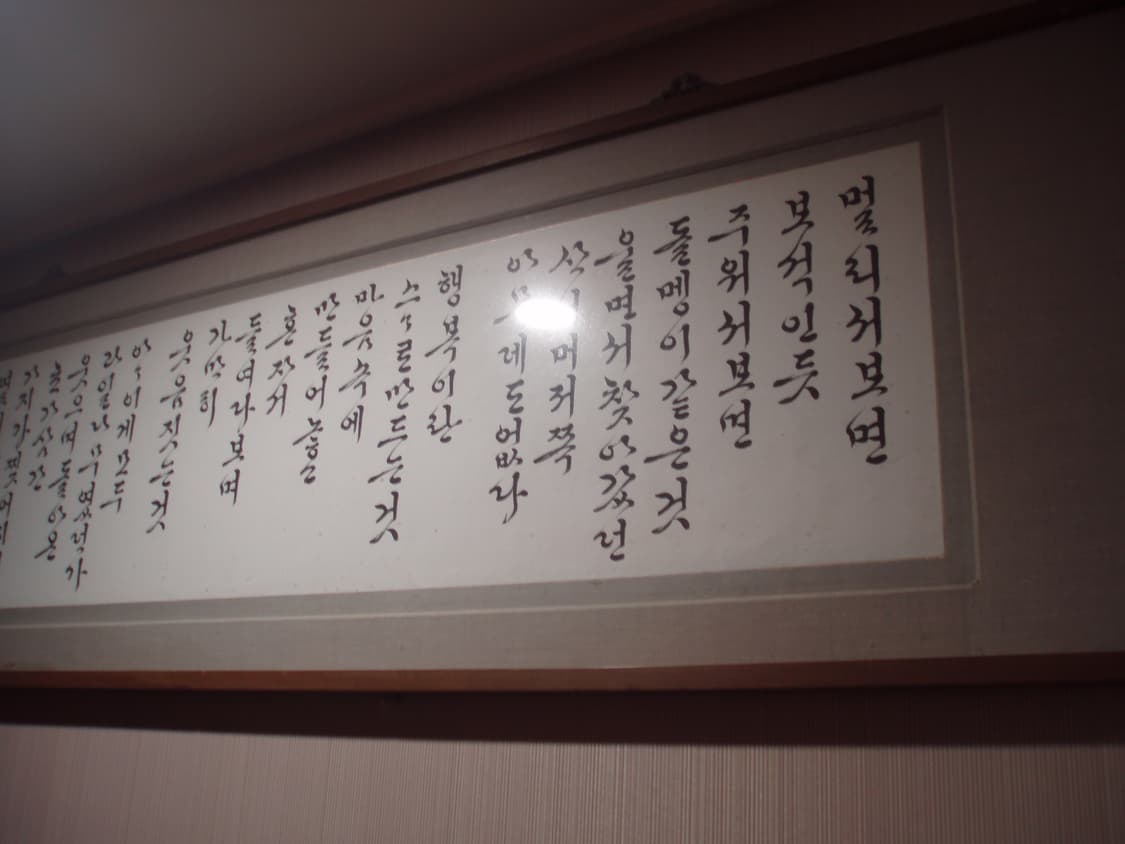 멀리서보면
보석인듯
주워서보면
돌멩이같은것
울면서찾아갔던
산너머저쪽
아무데도없다
행복이란
스스로만드는것
마음속에
만들어
혼자서
들여다보며
가만히
웃음짓는것
아아이게모두
과일나무였던가
웃으며돌아온
초가삼간
가지가찢어지게